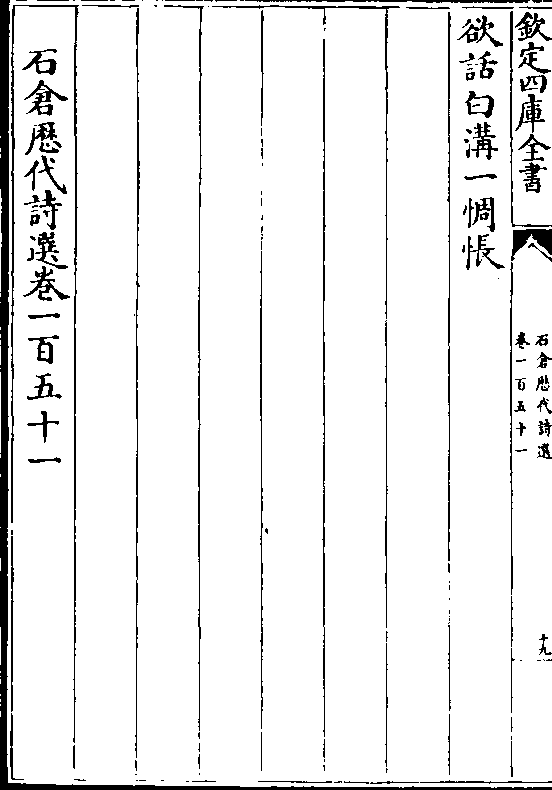 欽定四庫全書
石倉歷代詩選
卷一百五十一
十九
欲話匄溝一惆悵
石倉歷代詩選卷一百五十一